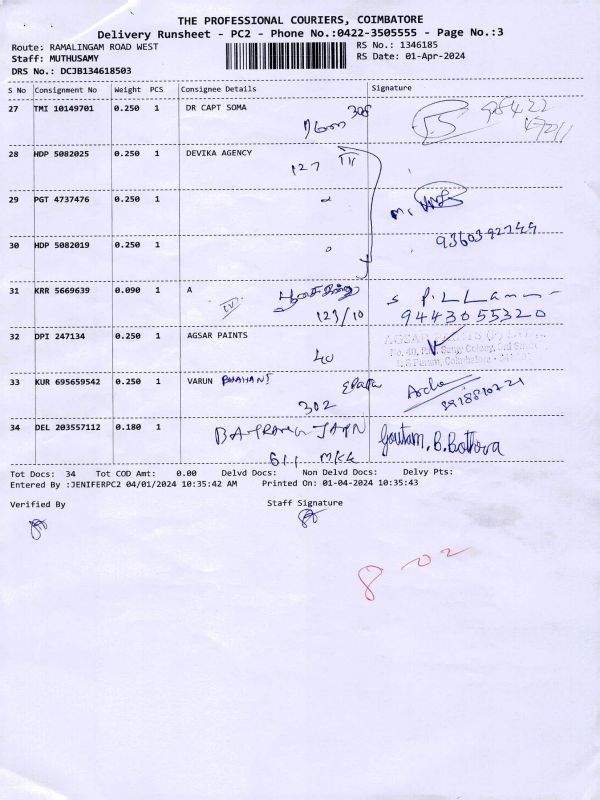 THE PROFESSIONAL COURIERS, COIMBATORE
Delivery Runsheet - PC2 - Phone No.:0422-3505555 - Page No.:3
Route: RAMALINGAM ROAD WEST
Staff: MUTHUSAMY
DRS No.: DCJB134618503
RS No.: 1346185
RS Date: 01-Apr-2024
S No Consignment No Weight PCS Consignee Details Signature
27 TMI 10149701 0.250 1 DR CAPT SOMA
308
98422
28 HDP 5082025 0.250 1 DEVIKA AGENCY
127 III
29 PGT 4737476 0.250 1
30 HDP 5082019 0.250 1
9360392749
31 KRR 5669639 0.090 1 A
IV
123/10
9443055320
32 DPI 247134 0.250 1 AGSAR PAINTS
40
33 KUR 695659542 0.250 1 VARUN BHAHANI
302
8918810721
34 DEL 203557112 0.180 1 BAJRANG JAIN
611 MKK
Goutam.B.Bothra
Tot Docs: 34 Tot COD Amt: 0.00 Delvd Docs: Non Delvd Docs: Delvy Pts:
Entered By :JENIFERPC2 04/01/2024 10:35:42 AM Printed On: 01-04-2024 10:35:43
Verified By Staff Signature
8-02